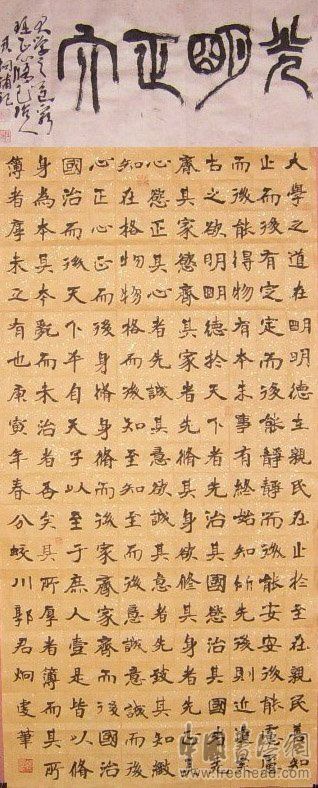 光明正大
大學之道在明明德在親民在止於至在親民善知
止而後有定定而後能靜靜而後能安安後能慮慮
而後能得物有本末事有終始知所先後則近道矣
古之欲明明德於天下者先治其國慾治其國者先
齊其家慾齊其家者先修其身欲修其身者先正其
心慾正其心者先誠其意欲誠其意者先致其知緻
知在格物物格而後知至而後意誠而後
心正心正而後身脩身脩而後家齊家齊而後國治
國治而後天下平自天子以至于庶人壹是皆以脩
身為本其本亂而未治者否矣其所厚者薄而其所
薄者摩未之有也庚寅年春分蛟川郭君炯虔筆
中國書法網
www.freehead.com